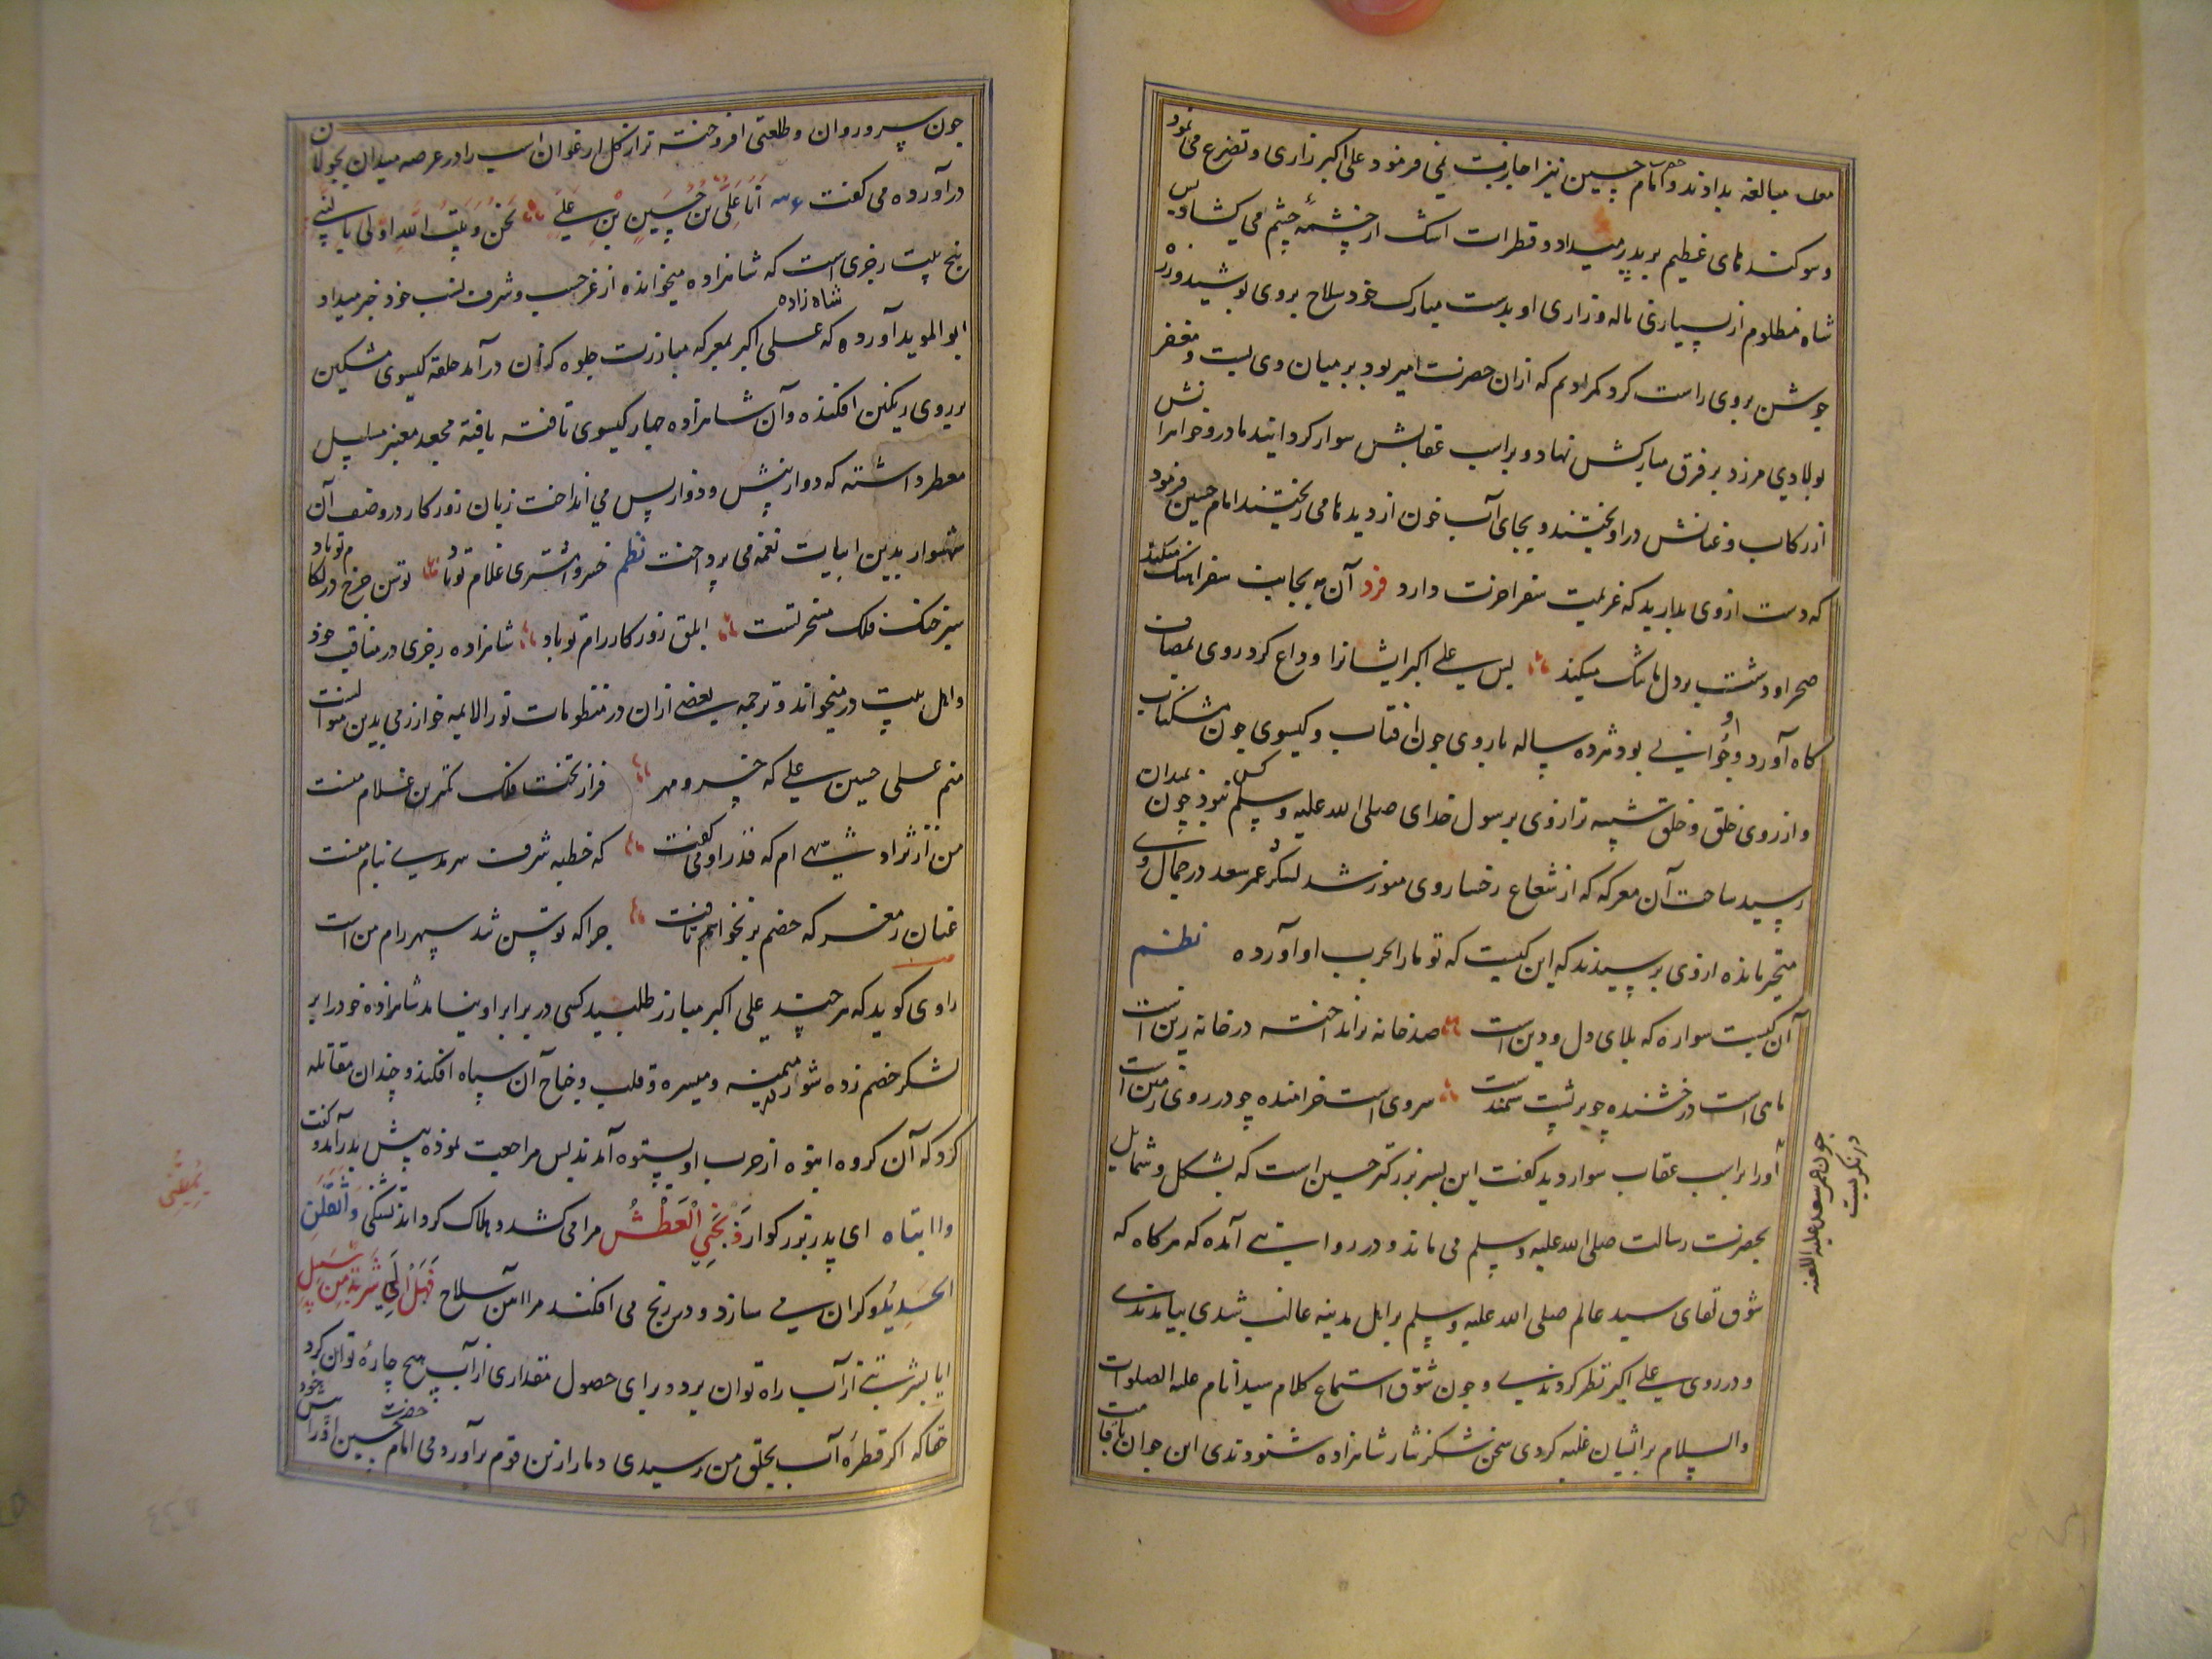 مبالغه بدادند و حضرت امام حسین نیز اجازت نمی فرمود علی اکبر زاری و تضرع می نمود
و سوکند های عظیم بر پدر میداد و قطرات اشک از چشمهٔ چشم می کشاد پس
شاه مظلوم از بسیاری ناله و زاری او بدست مبارک خود سلاح بر وی پوشید و زره
جوشن بر وی راست کرد کمر ادیم که ازان حضرت امیر بود بر میان وی بست و مغفر
پولادی بر فرق مبارکش نهاد و بر اسب عقابش سوار کردانید مادر و خواهرانش
از رکاب و عنانش در آویختند و بجای آب خون از دیدها می ریختند امام حسین فرمود
که دست از وی بدارید که عزیمت سفر اخرت دارد فرد آن مه بجانب سفر اهنک میکند
صحرا و دشت بر دل ما تنک میکند پس علی اکبر ایشانرا وداع کرد روی بمصاف
کاه آورد و او جوانی بود هژده ساله با روی چون آفتاب و کیسوی چون مشکناب
و از روی خلق و خلق شبیه تر از وی برسول خدای صلی الله علیه وسلم کس نبود چون بمیدان
رسید ساحت آن معرکه که از شعاع رخسار وی منور شد لشکر عمر سعد در جمال وی
متحیر مانده از وی پرسیدند که این کیست که تو ما را بحرب او آورده نظم
آن کیست سواره که بلای دل و دین است صد خانه برانداخته در خانه زین است
ماهی است درخشنده چو بر پشت سمندست سروی است خرامنده چو در روی زمین است
چون عمر سعد علیه اللعنه در نکریست
او را بر اسب عقاب سوار دید کفت این پسر بزرکتر حسین است که بشکل و شمایل
بحضرت رسالت صلی الله علیه وسلم می ماند و در روایتی آمده که هر کاه که
شوق لقای سید عالم صلی الله علیه وسلم بر اهل مدینه غالب شدی بیامدندی
و در روی علی اکبر نظر کردندی و چون شوق استماع کلام سید انام علیه الصلوات
والسلام بر ایشان غلبه کردی سخن شکرنثار شاهزاده شنودندی این جوان با قامت
چون سرو روان و طلعتی افروخته تر از کل ارغوان اسب را در عرصه میدان بجولان
در آورده می کفت أنا علی بن حسین بن علی نحن و بیت الله اولی بالنبی
پنج بیت رجزی است که شاهزاده میخوانده از عز حسب و شرف نسب خود خبر میداد
ابوالموید آورده که شاه زاده علی اکبر بمعرکه مبارزت جلوه کنان در آمد حلقه کیسوی مشکین
بر روی رنکین افکنده و آن شاهزاده چهار کیسوی تافته بافته مجعد معنبر مسلسل
معطر داشته که دو از پیش و دو از پس می انداخت زبان روزکار در وصف آن
شهسوار بدین ابیات نغمه می پرداخت نظم خسروا مشتری غلام تو باد توسن چرخ در لکام تو باد
سبز خنک فلک مسخر تست ابلق روزکار رام تو باد شاهزاده رجزی در مناقب خود
و اهل بیت در میخواند و ترجمه بعضی ازان در منظومات نور الائمه خوارزمی بدین منوالست
منم علی حسین علی که خسرو مهر فراز تخت فلک کمترین غلام منست
من از نژاد شهی ام که قدر او می کفت که خطبه شرف سرمدی بنام منست
عنان ز معرکه خصم بر نخواهم تافت چرا که توسن تند سپهر رام من است
راوی کوید که هر چند علی اکبر مبارز طلبید کسی در برابر او نیامد شاهزاده خود را بر
لشکر خصم زده شور در میمنه و میسره و قلب و جناح آن سپاه افکند و چندان مقاتله
کرد که آن کروه انبوه از حرب او بستوه آمدند پس مراجعت نموده پیش پدر آمد و کفت
وا ابتاه ای پدر بزرکوار ذبحنی العطش مرا می کشد و هلاک کرداند تشنکی و اثقلنی
الحدید و کران می سازد و در رنج می افکند مرا آهن سلاح فهل الی شربة من سبیل
ایا بشربتی از آب راه توان برد و برای حصول مقداری از آب هیچ چارهٔ توان کرد
حقا که اکر قطرهٔ آب بحلق من رسیدی دمار ازین قوم بر آوردمی حضرت امام حسین او را پیش خود